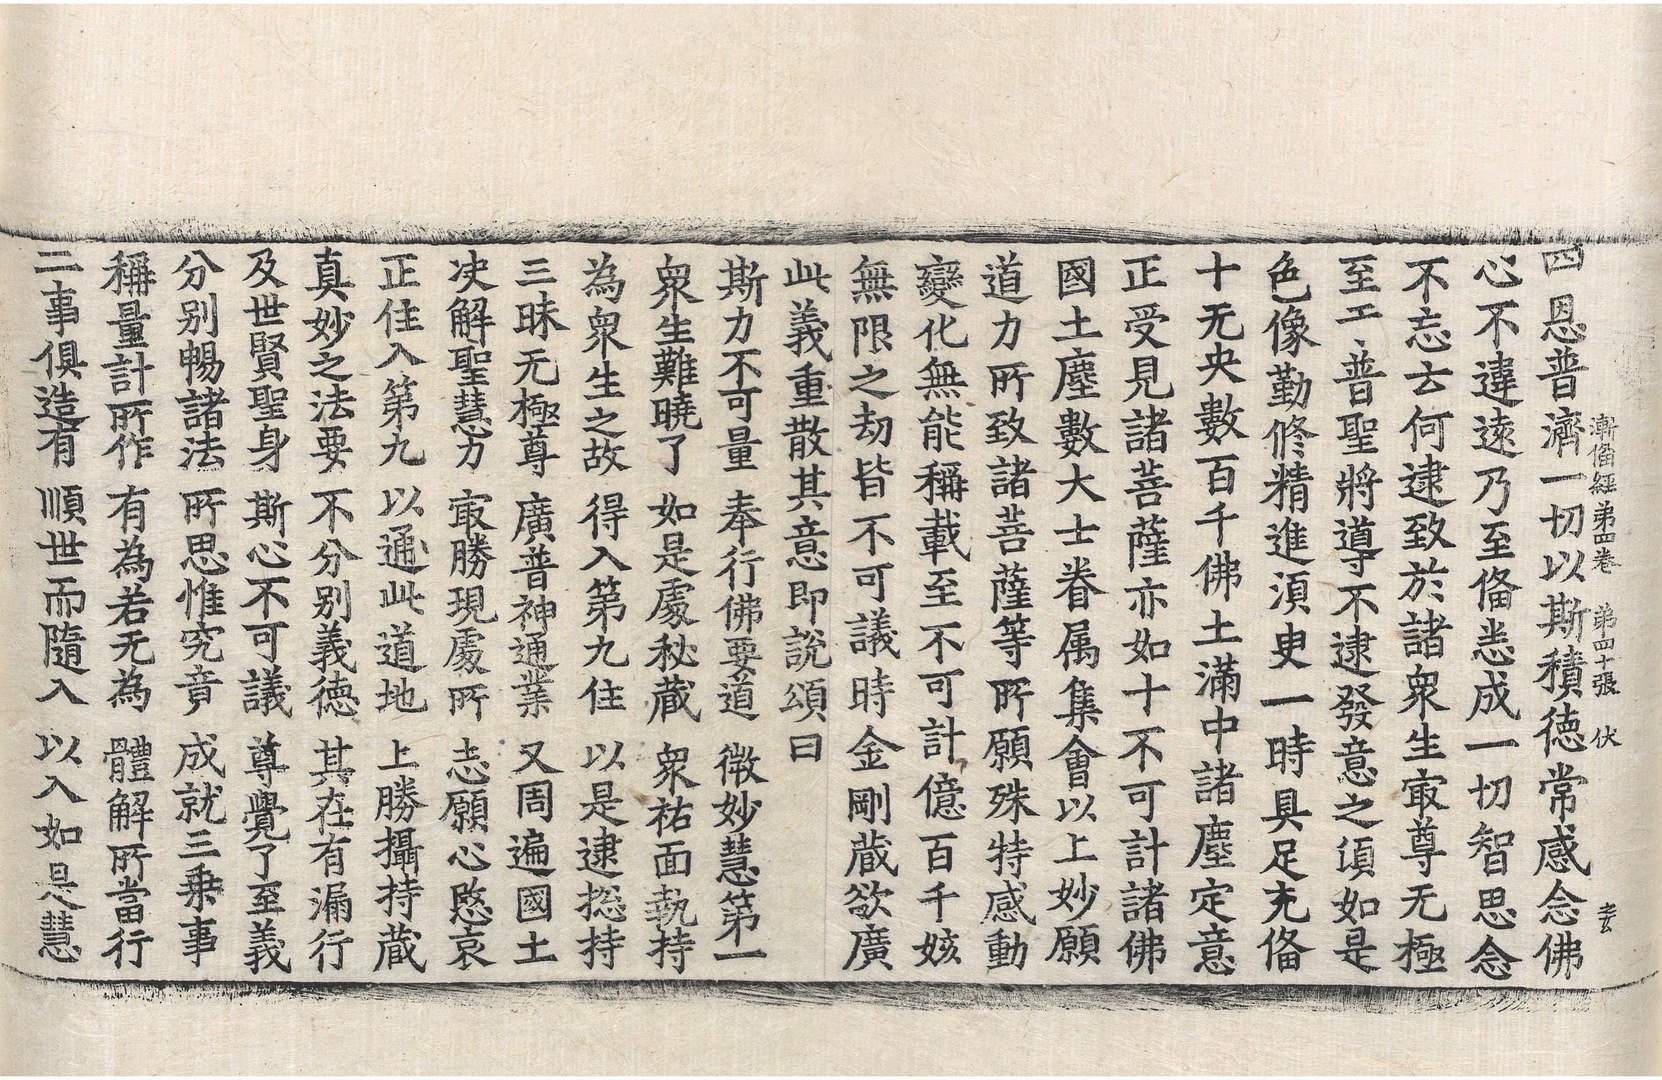 漸俻經第四卷　第四十張　伏　玄
四恩普濟一切以斯積德常感念佛
心不違遠乃至俻悉成一切智思念
不忘云何逮致於諸衆生㝡尊无極
至工普聖將導不逮發意之頃如是
色像勤修精進須臾一時具足充俻
十无央數百千佛土滿中諸塵定意
正受見諸菩薩亦如十不可計諸佛
國土塵數大士眷属集會以上妙願
道力所致諸菩薩等所願殊特感動
變化無能稱載至不可計億百千姟
無限之劫皆不可議時金剛藏欲廣
此義重散其意即說頌曰
斯力不可量　奉行佛要道　微妙慧第一
衆生難曉了　如是處秘藏　衆祐面執持
為衆生之故　得入第九住　以是逮揔持
三昧无極尊　廣普神通業　又周遍國土
决解聖慧力　㝡勝現處所　志願心愍哀
正住入第九　以通此道地　上勝攝持藏
真妙之法要　不分別義德　其在有漏行
及世賢聖身　斯心不可議　尊覺了至義
分別暢諸法　所思惟究竟　成就三乗事
稱量計所作　有為若无為　體解所當行
二事俱造有　順世而隨入　以入如是慧